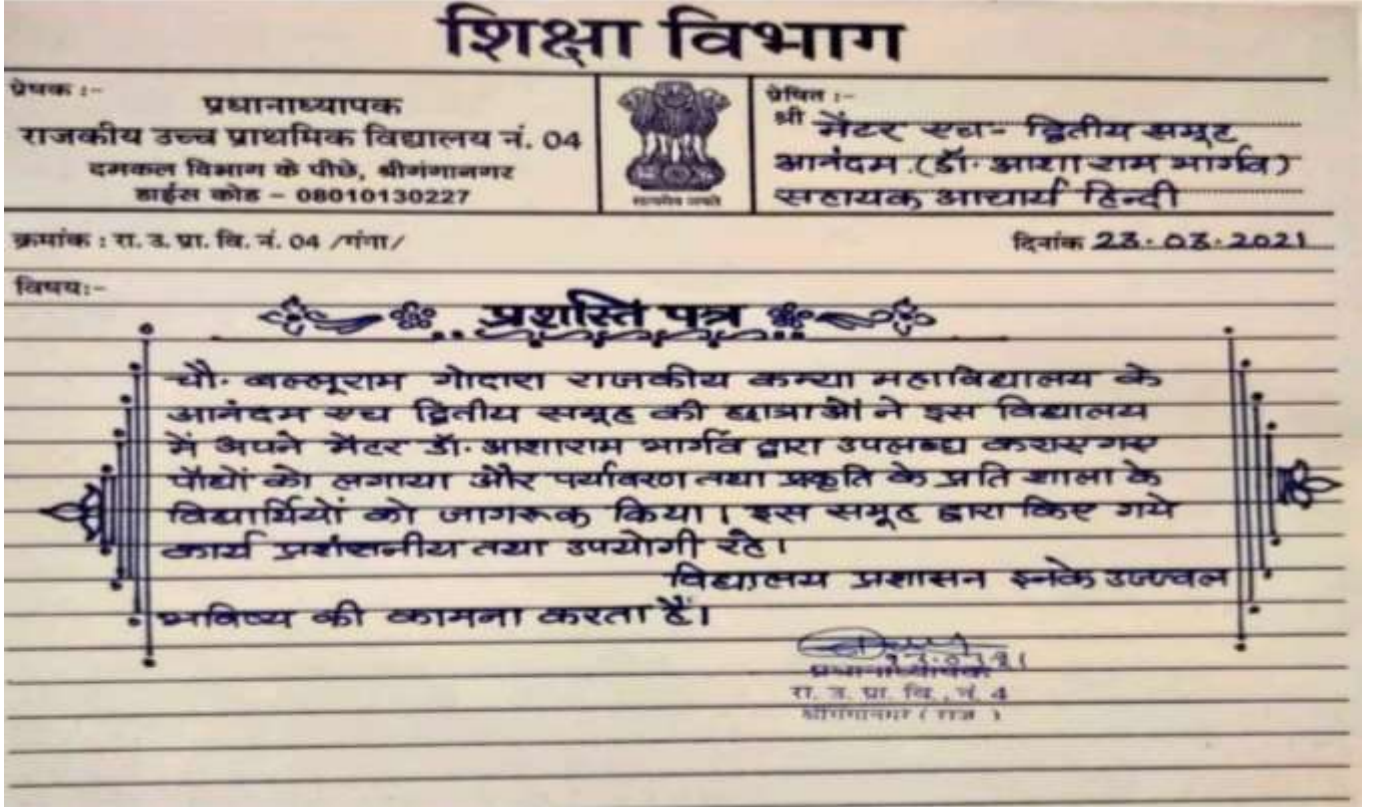 शिक्षा विभाग
प्रेषक :-
प्रधानाध्यापक
राजकीय उच्च प्राथमिक विद्यालय नं. 04
दमकल विभाग के पीछे, श्रीगंगानगर
डाईस कोड - 08010130227
सत्यमेव जयते
प्रेषित :-
श्री मेंटर एच- द्वितीय समूह
आनंदम (डॉ. आशा राम भार्गव)
सहायक आचार्य हिन्दी
क्रमांक : रा. उ. प्रा. वि. नं. 04 /गंगा/
दिनांक 23.03.2021
विषय:-
प्रशस्ति पत्र
चौ. बल्लूराम गोदारा राजकीय कन्या महाविद्यालय के
आनंदम एच द्वितीय समूह की छात्राओं ने इस विद्यालय
में अपने मेंटर डॉ. आशाराम भार्गव द्वारा उपलब्ध कराए गए
पौधों को लगाया और पर्यावरण तथा प्रकृति के प्रति शाला के
विद्यार्थियों को जागरूक किया। इस समूह द्वारा किए गये
कार्य प्रशंसनीय तथा उपयोगी रहे।
विद्यालय प्रशासन इनके उज्ज्वल
भविष्य की कामना करता हैं।
प्रधानाध्यापक
रा. उ. प्रा. वि., नं. 4
श्रीगंगानगर ( राज )